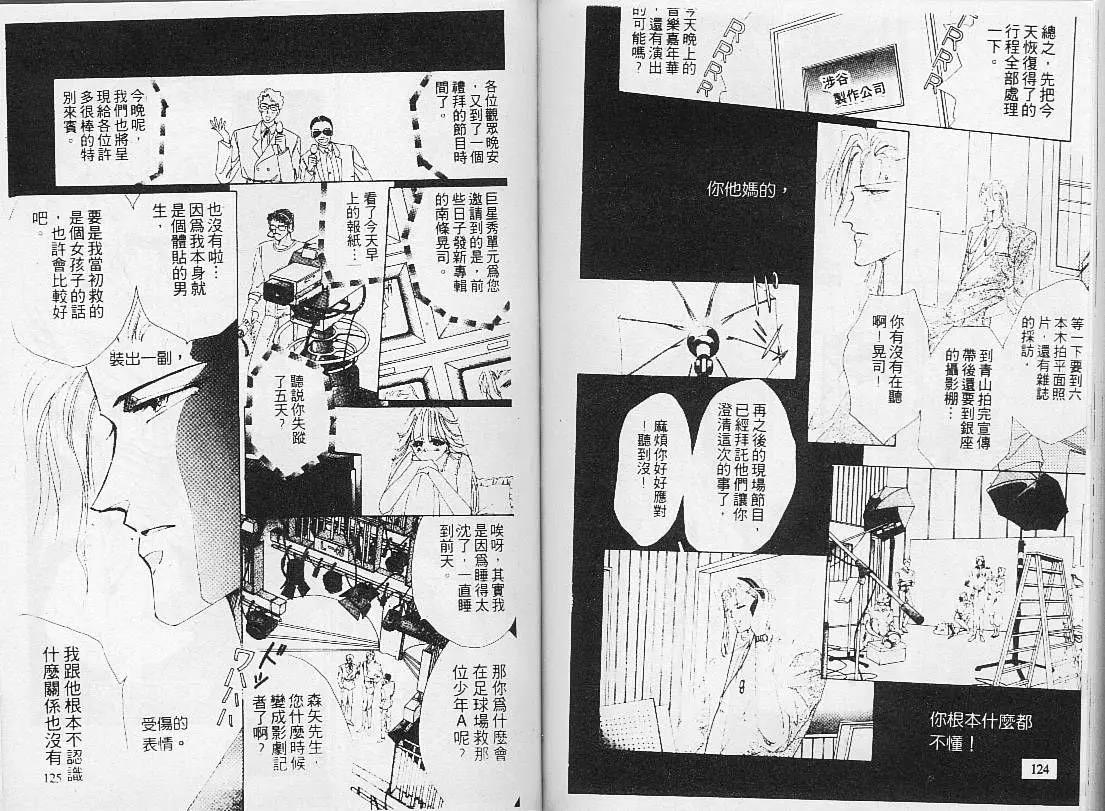 總之，先把今
天恢復得了的
行程全部處理
一下。
RRRR
涉谷
製作公司
RRRR
今天晚上的
音樂嘉年華
，還有演出
的可能嗎？
你他媽的，
等一下要到六
本木拍平面照
片，還有雜誌
的採訪．
到青山拍完宣傳
帶後還要到銀座
的攝影棚…
你有沒有在聽
啊！晃司！
再之後的現場節目，
已經拜託他們讓你
澄清這次的事了，
麻煩你好好應對
！聽到沒！
你根本什麼都
不懂！
124
各位觀眾晚安
，又到了一個
禮拜的節目時
間了。
今晚呢，
我們也將呈
現給各位許
多很棒的特
別來賓。
巨星秀單元爲您
邀請到的是，前
些日子發新專輯
的南條晃司。
看了今天早
上的報紙…
聽說你失蹤
了五天？
唉呀，其實我
是因爲睡得太
沈了，一直睡
到前天。
那你爲什麼會
在足球場救那
位少年A呢？
森矢先生，
您什麼時候
變成影劇記
者了啊？
ドッ
ワハハハ
也沒有啦…
因爲我本身就
是個體貼的男
生，
要是我當初救的
是個女孩子的話
，也許會比較好
吧。
裝出一副，
受傷的
表情。
我跟他根本不認識
什麼關係也沒有
125